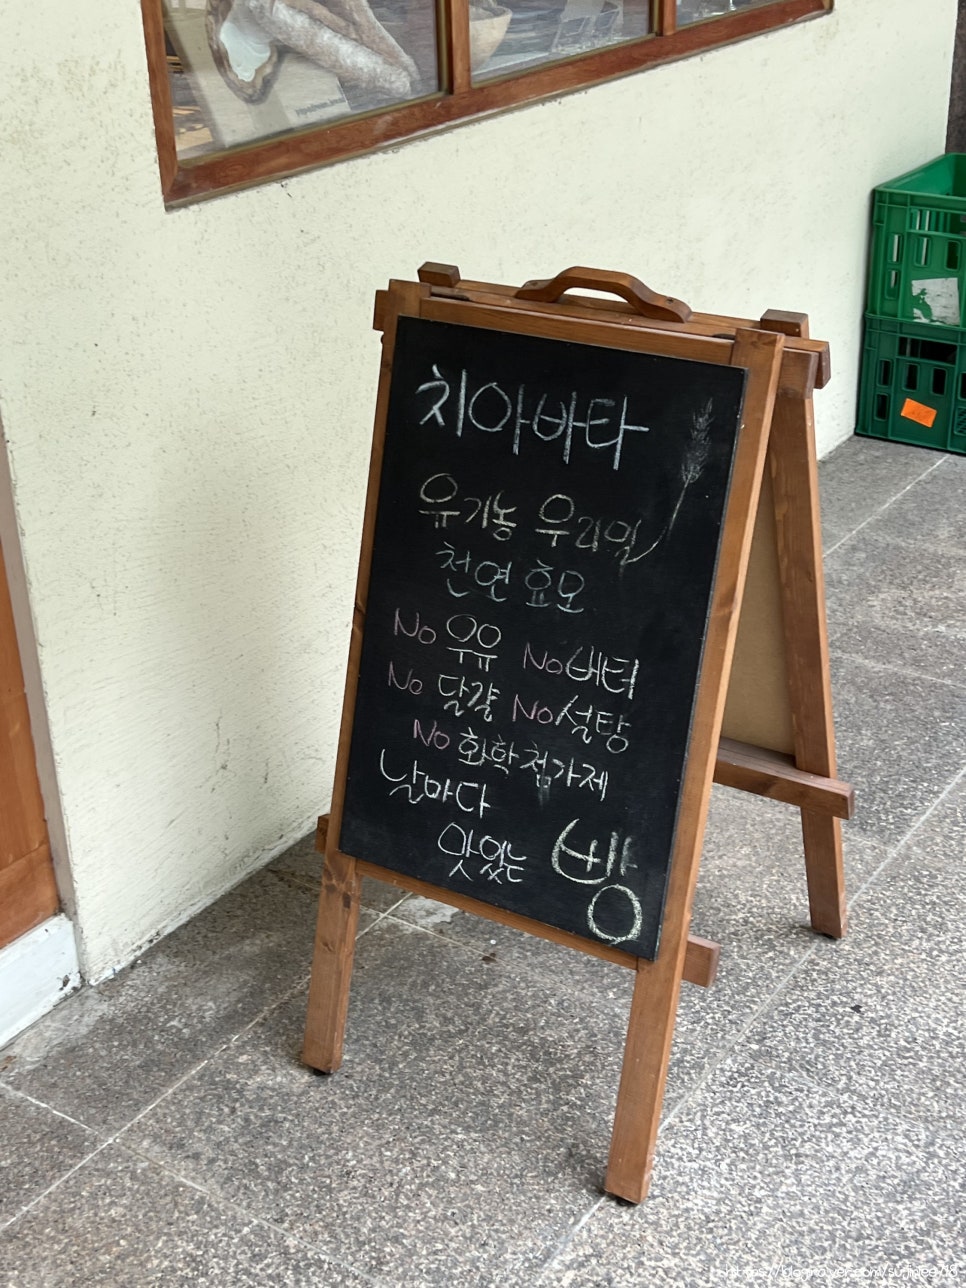 치아바타
유기농 우리밀
천연 효모
No 우유 No 버터
No 달걀 No 설탕
No 화학첨가제
날마다
맛있는 빵